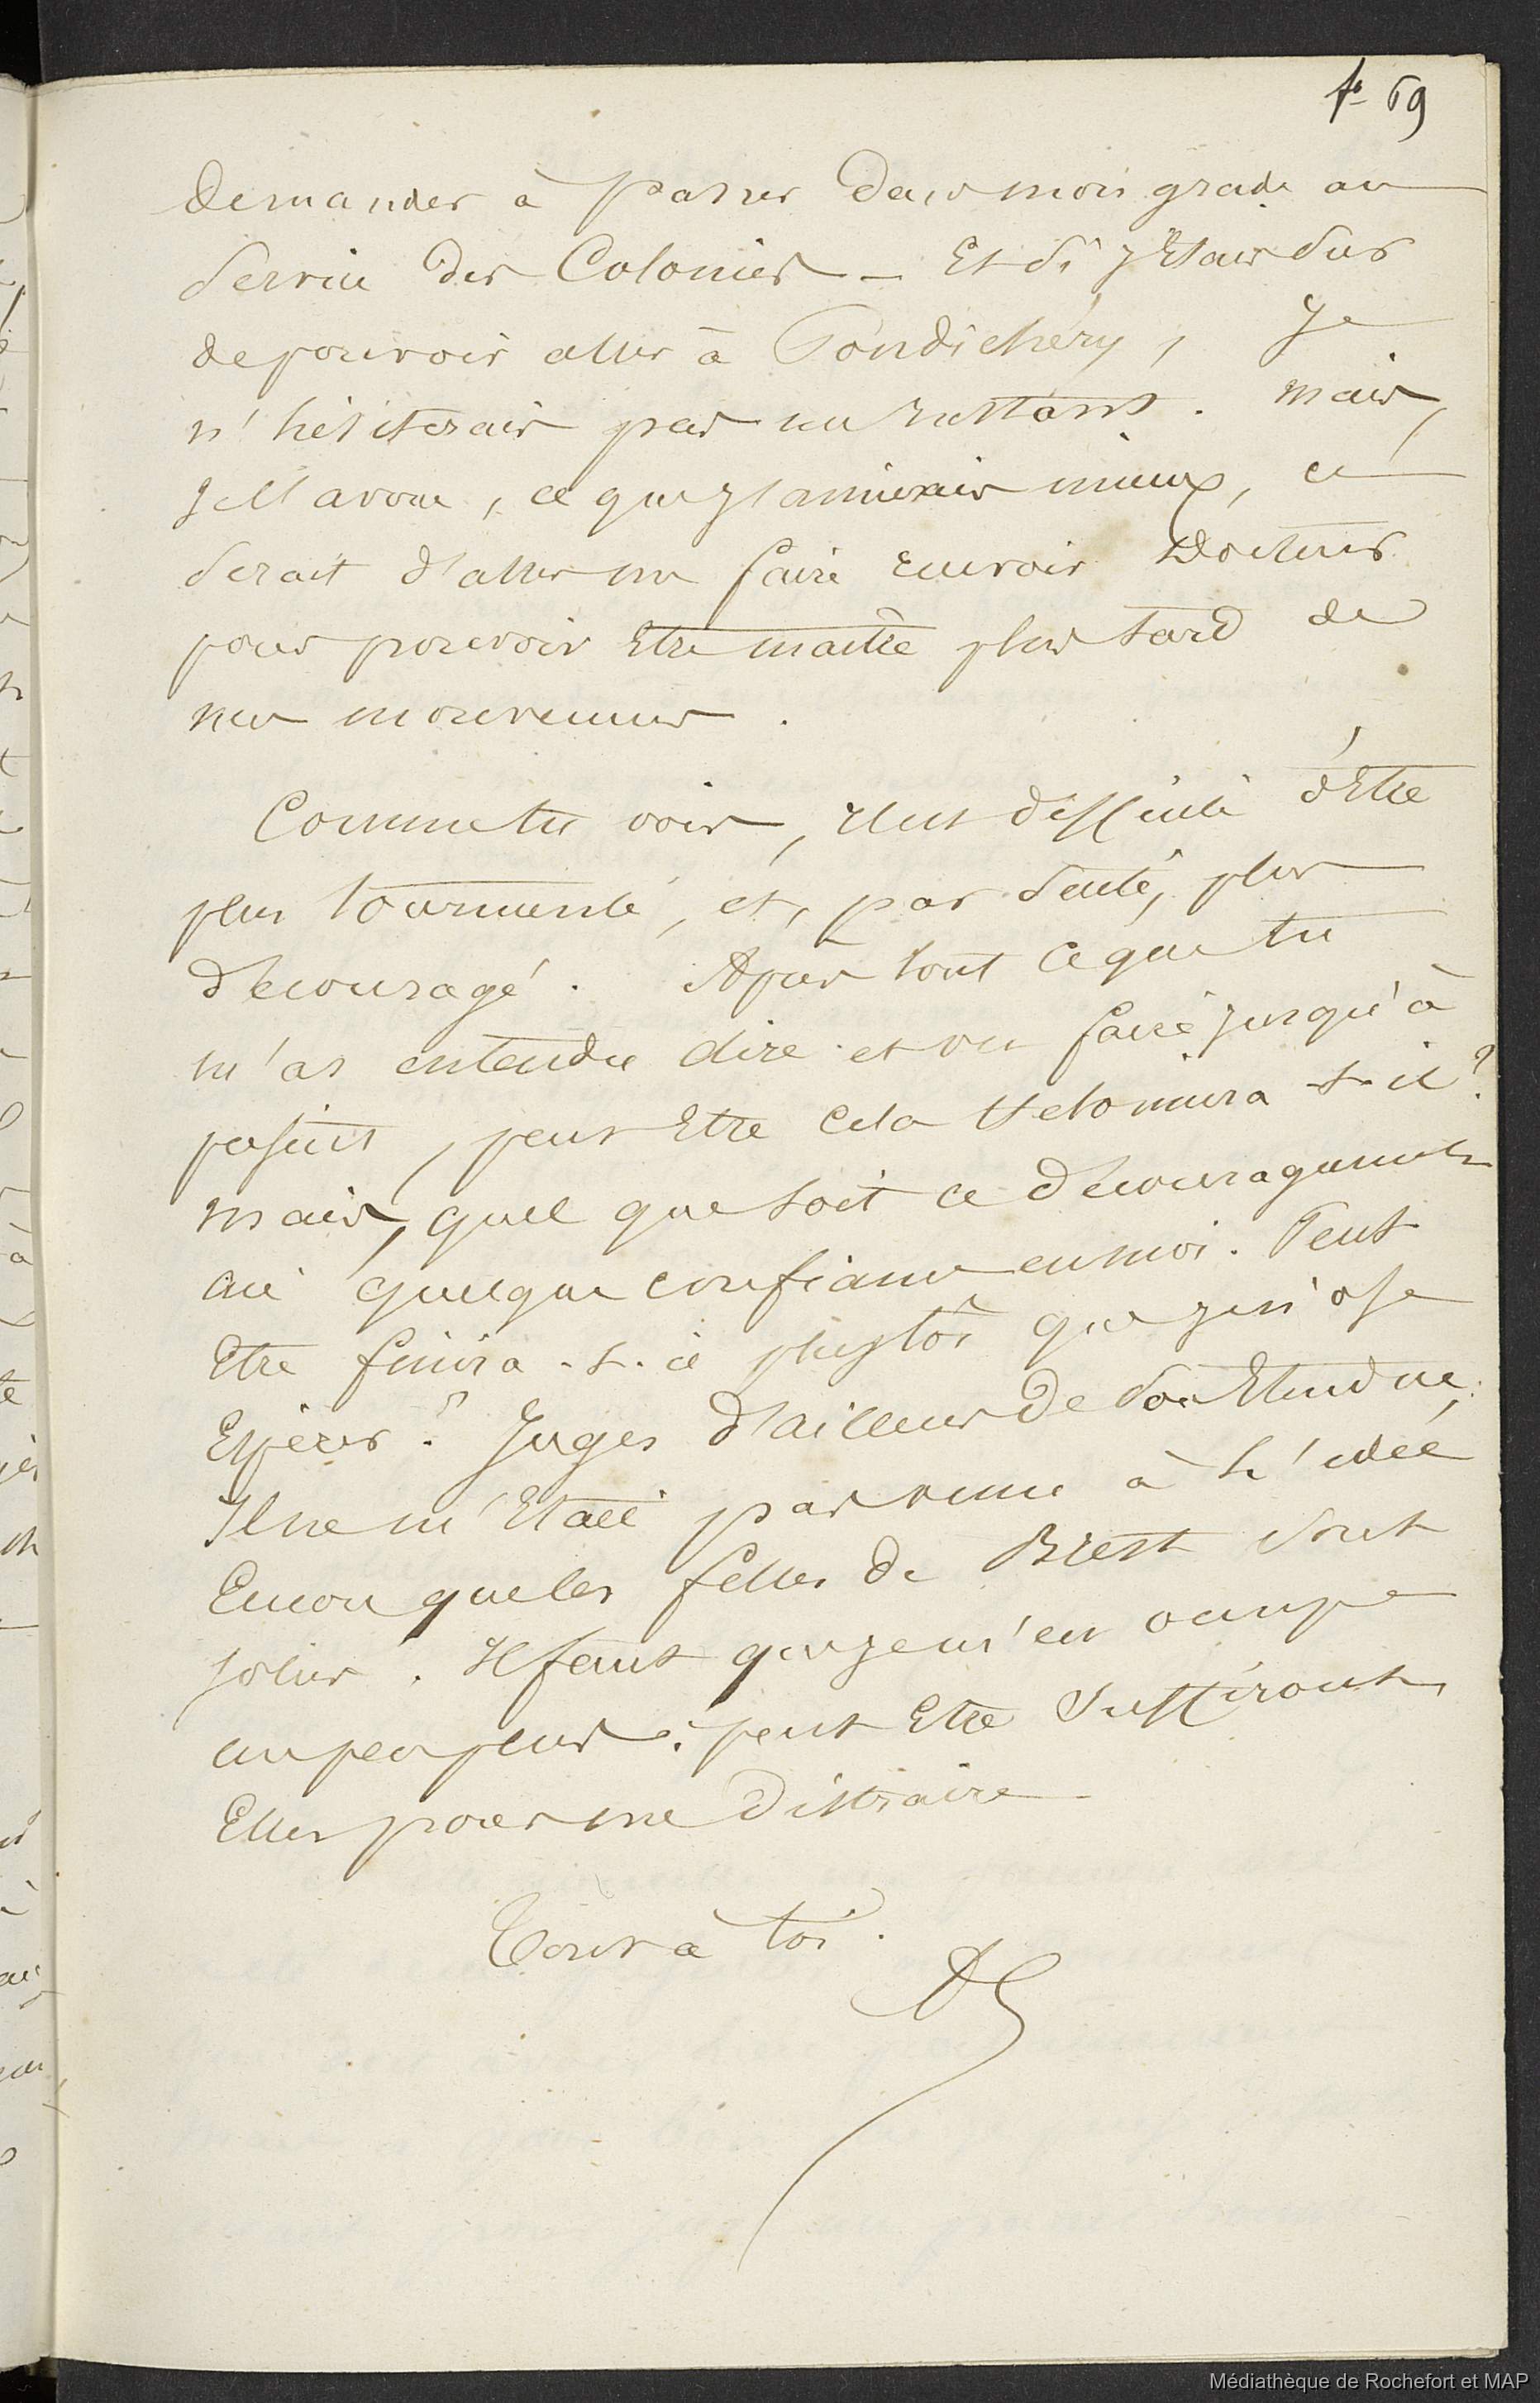 fo 69
demander à passer dans mon grade au
service des Colonies — Et si j'étais sûr
de pouvoir aller à Pondichéry, Je
n'hésiterais pas un instant. mais,
je l'avoue, ce que j'aimerais mieux, ce
serait d'aller me faire recevoir Docteur
pour pouvoir être maître plus tard de
mes mouvements.
Comme tu vois, il est difficile d'être
plus tourmenté, et, par suite, plus
découragé. Après tout ce que tu
m'as entendu dire et vu faire jusqu'à
présent, peut être cela t'étonnera-t-il?
mais, quel que soit ce découragement
aie quelque confiance en moi. Peut
être finira-t-il plus tôt que je n'ose
Espérer? Juges d'ailleurs de son Etendue;
Il ne m'était pas venu à l'idée
Encore que les filles de Brest sont
jolies. Il faut que je m'en occupe
un peu plus: peut être suffiront
Elles pour me distraire —
Tout à toi.
AG
Médiathèque de Rochefort et MAP